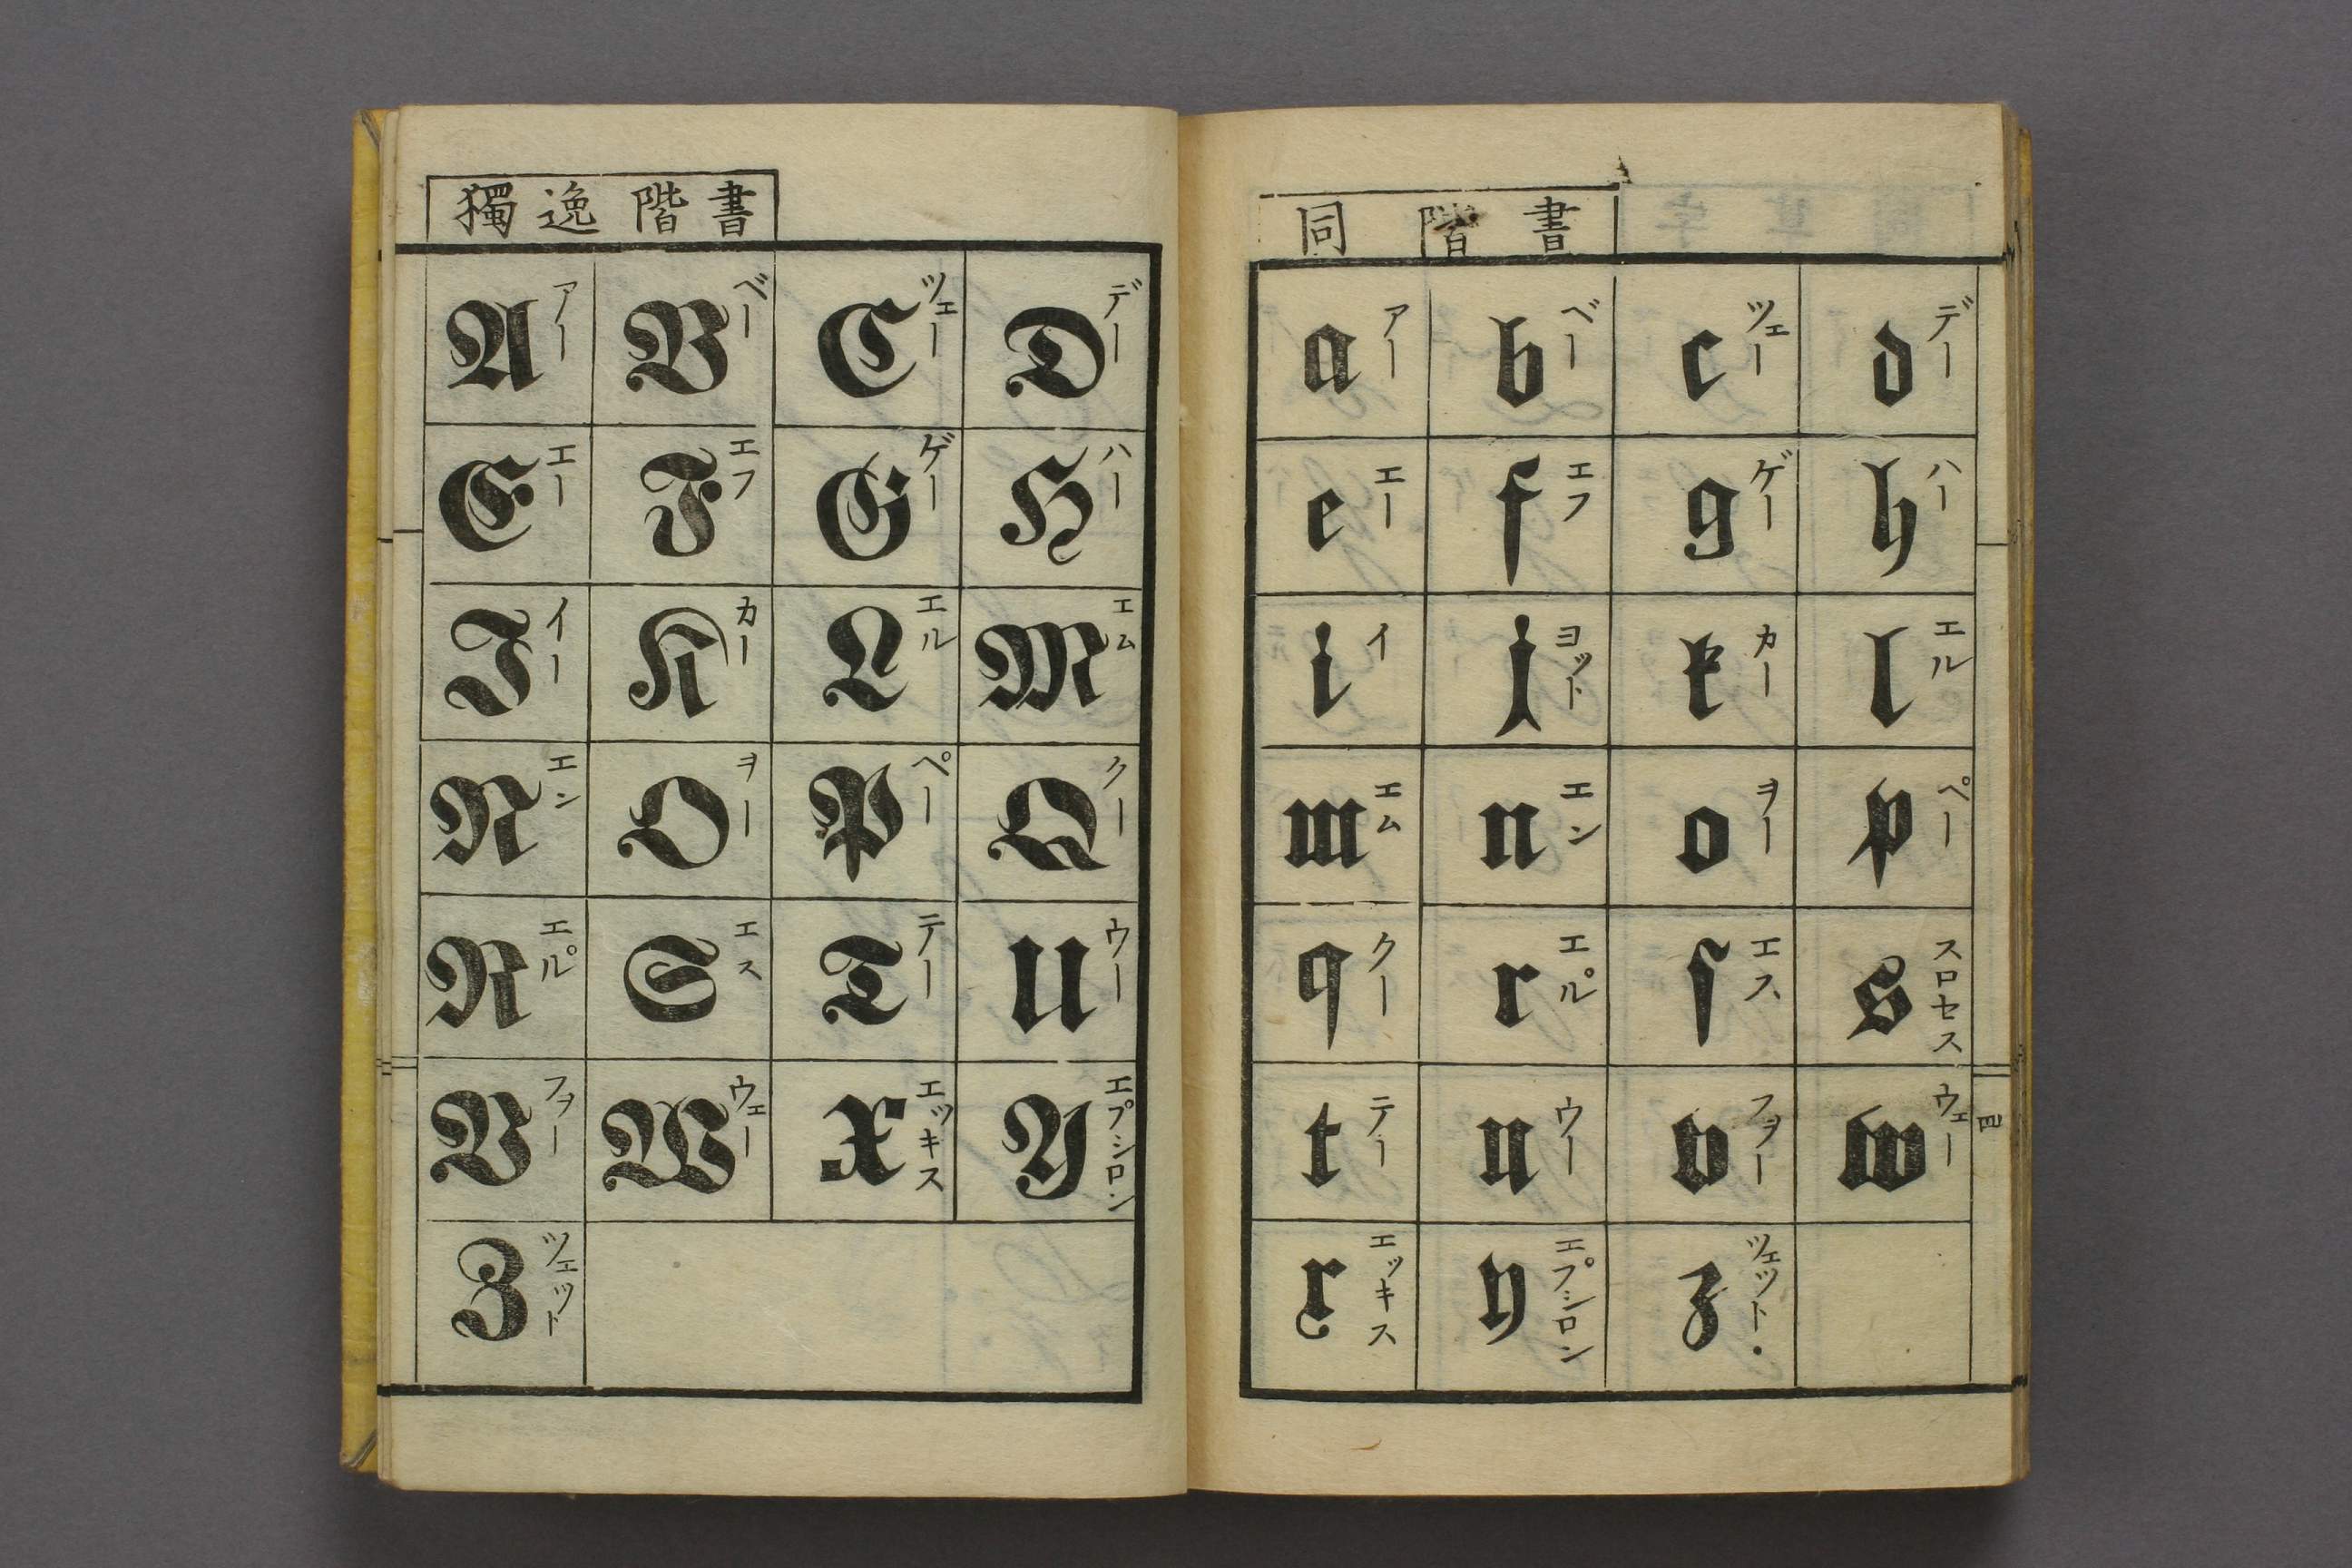 獨逸階書
A アー B ベー C ツェー D デー
E エー F エフ G ゲー H ハー
I イー K カー L エル M エム
N エン O ヲー P ペー Q クー
R エル゜ S エス T テー U ウー
V フヲー W ウェー X エッキス Y エプシロン
Z ツェット
同階書
a アー b ベー c ツェー d デー
e エー f エフ g ゲー h ハー
i イ j ヨット k カー l エル
m エム n エン o ヲー p ペー
q クー r エル゜ ſ エス s スロセス
t テー u ウー v フヲー w ウェー
x エッキス y エプシロン z ツェット
四